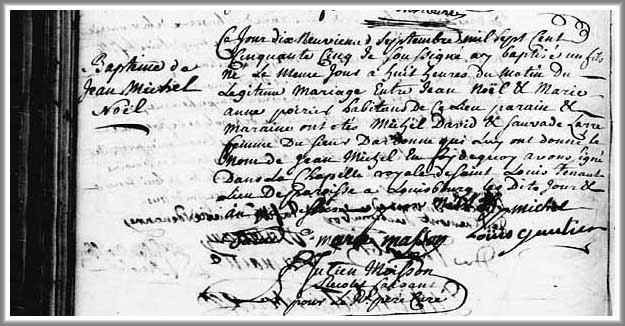 Baptême de
Jean Michel
Noël
Ce Jour dix neuvieme de Septembre mil sept Cent
Cinquante Cinq Je Soussigné ay baptisé un fils
né Le meme Jour a huit heures du matin du
Legitime Mariage Entre Jean Noël & Marie
anne poirier habitans de Ce Lieu parain &
Maraine ont étés Michel David & Sauvade
femme Du Sieur qui Luy ont donné le
Nom de Jean Michel En foy de quoy avons Signé
Dans La Chapelle royale de Saint Louis Tenant
Lieu De paroisse a Louisbourg Les Dits Jour &
An
michel
marie masson
Louis gautier
Julien Moisson
pour Le R. pere Curé